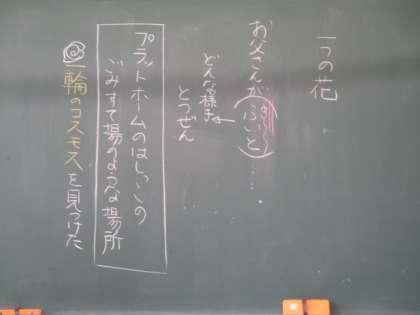 一つの花
お父さんがふいと……
どんな様子
とつぜん
プラットホームのはしっこの
ごみすて場のような場所
一輪のコスモスを見つけた